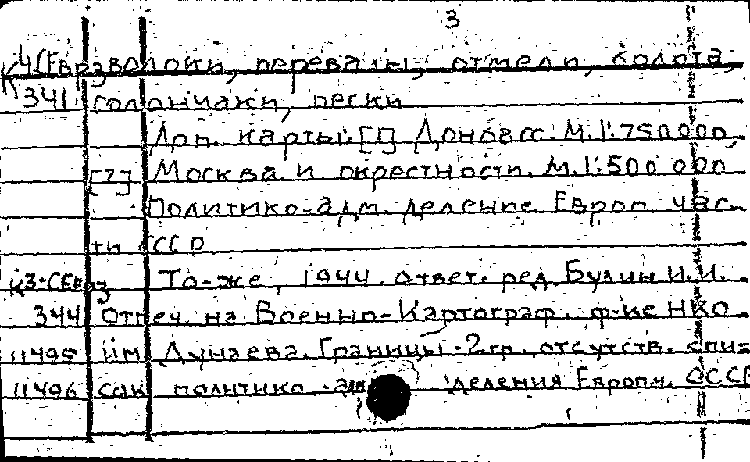 3
К4(Евраз волоки, перевалы, отмели, болота,
341 солончаки, пески
Доп. карты: [1] Донбасс. М. 1:750000,
[2] Москва и окрестности. М. 1:500 000
Политико-адм. деление Европ час-
ти СССР
То-же, 1944. ответ. ред. Булин И.И.
344 Отпеч. на Военно-Картограф. ф-ке НКО
11495 им Дунаева. Границы 2 гр. отсутств. спи-
11496 сок политико деления Европ. СССР